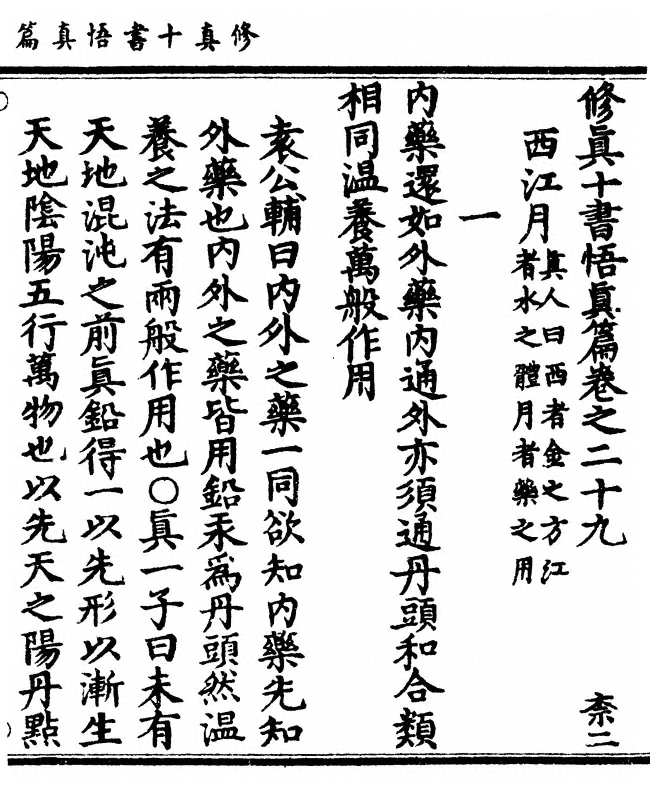 修真十書悟真篇
修眞十書悟眞篇卷之二十九 柰二
西江月 眞人曰西者金之方江
者水之體月者藥之用
一
內藥還如外藥內通外亦須通丹頭和合類
相同温養萬般作用
袁公輔曰內外之藥一同欲知內藥先知
外藥也內外之藥皆用鉛汞爲丹頭然温
養之法有兩般作用也○眞一子曰未有
天地混沌之前眞鉛得一以先形以漸生
天地陰陽五行萬物也以先天之陽丹點